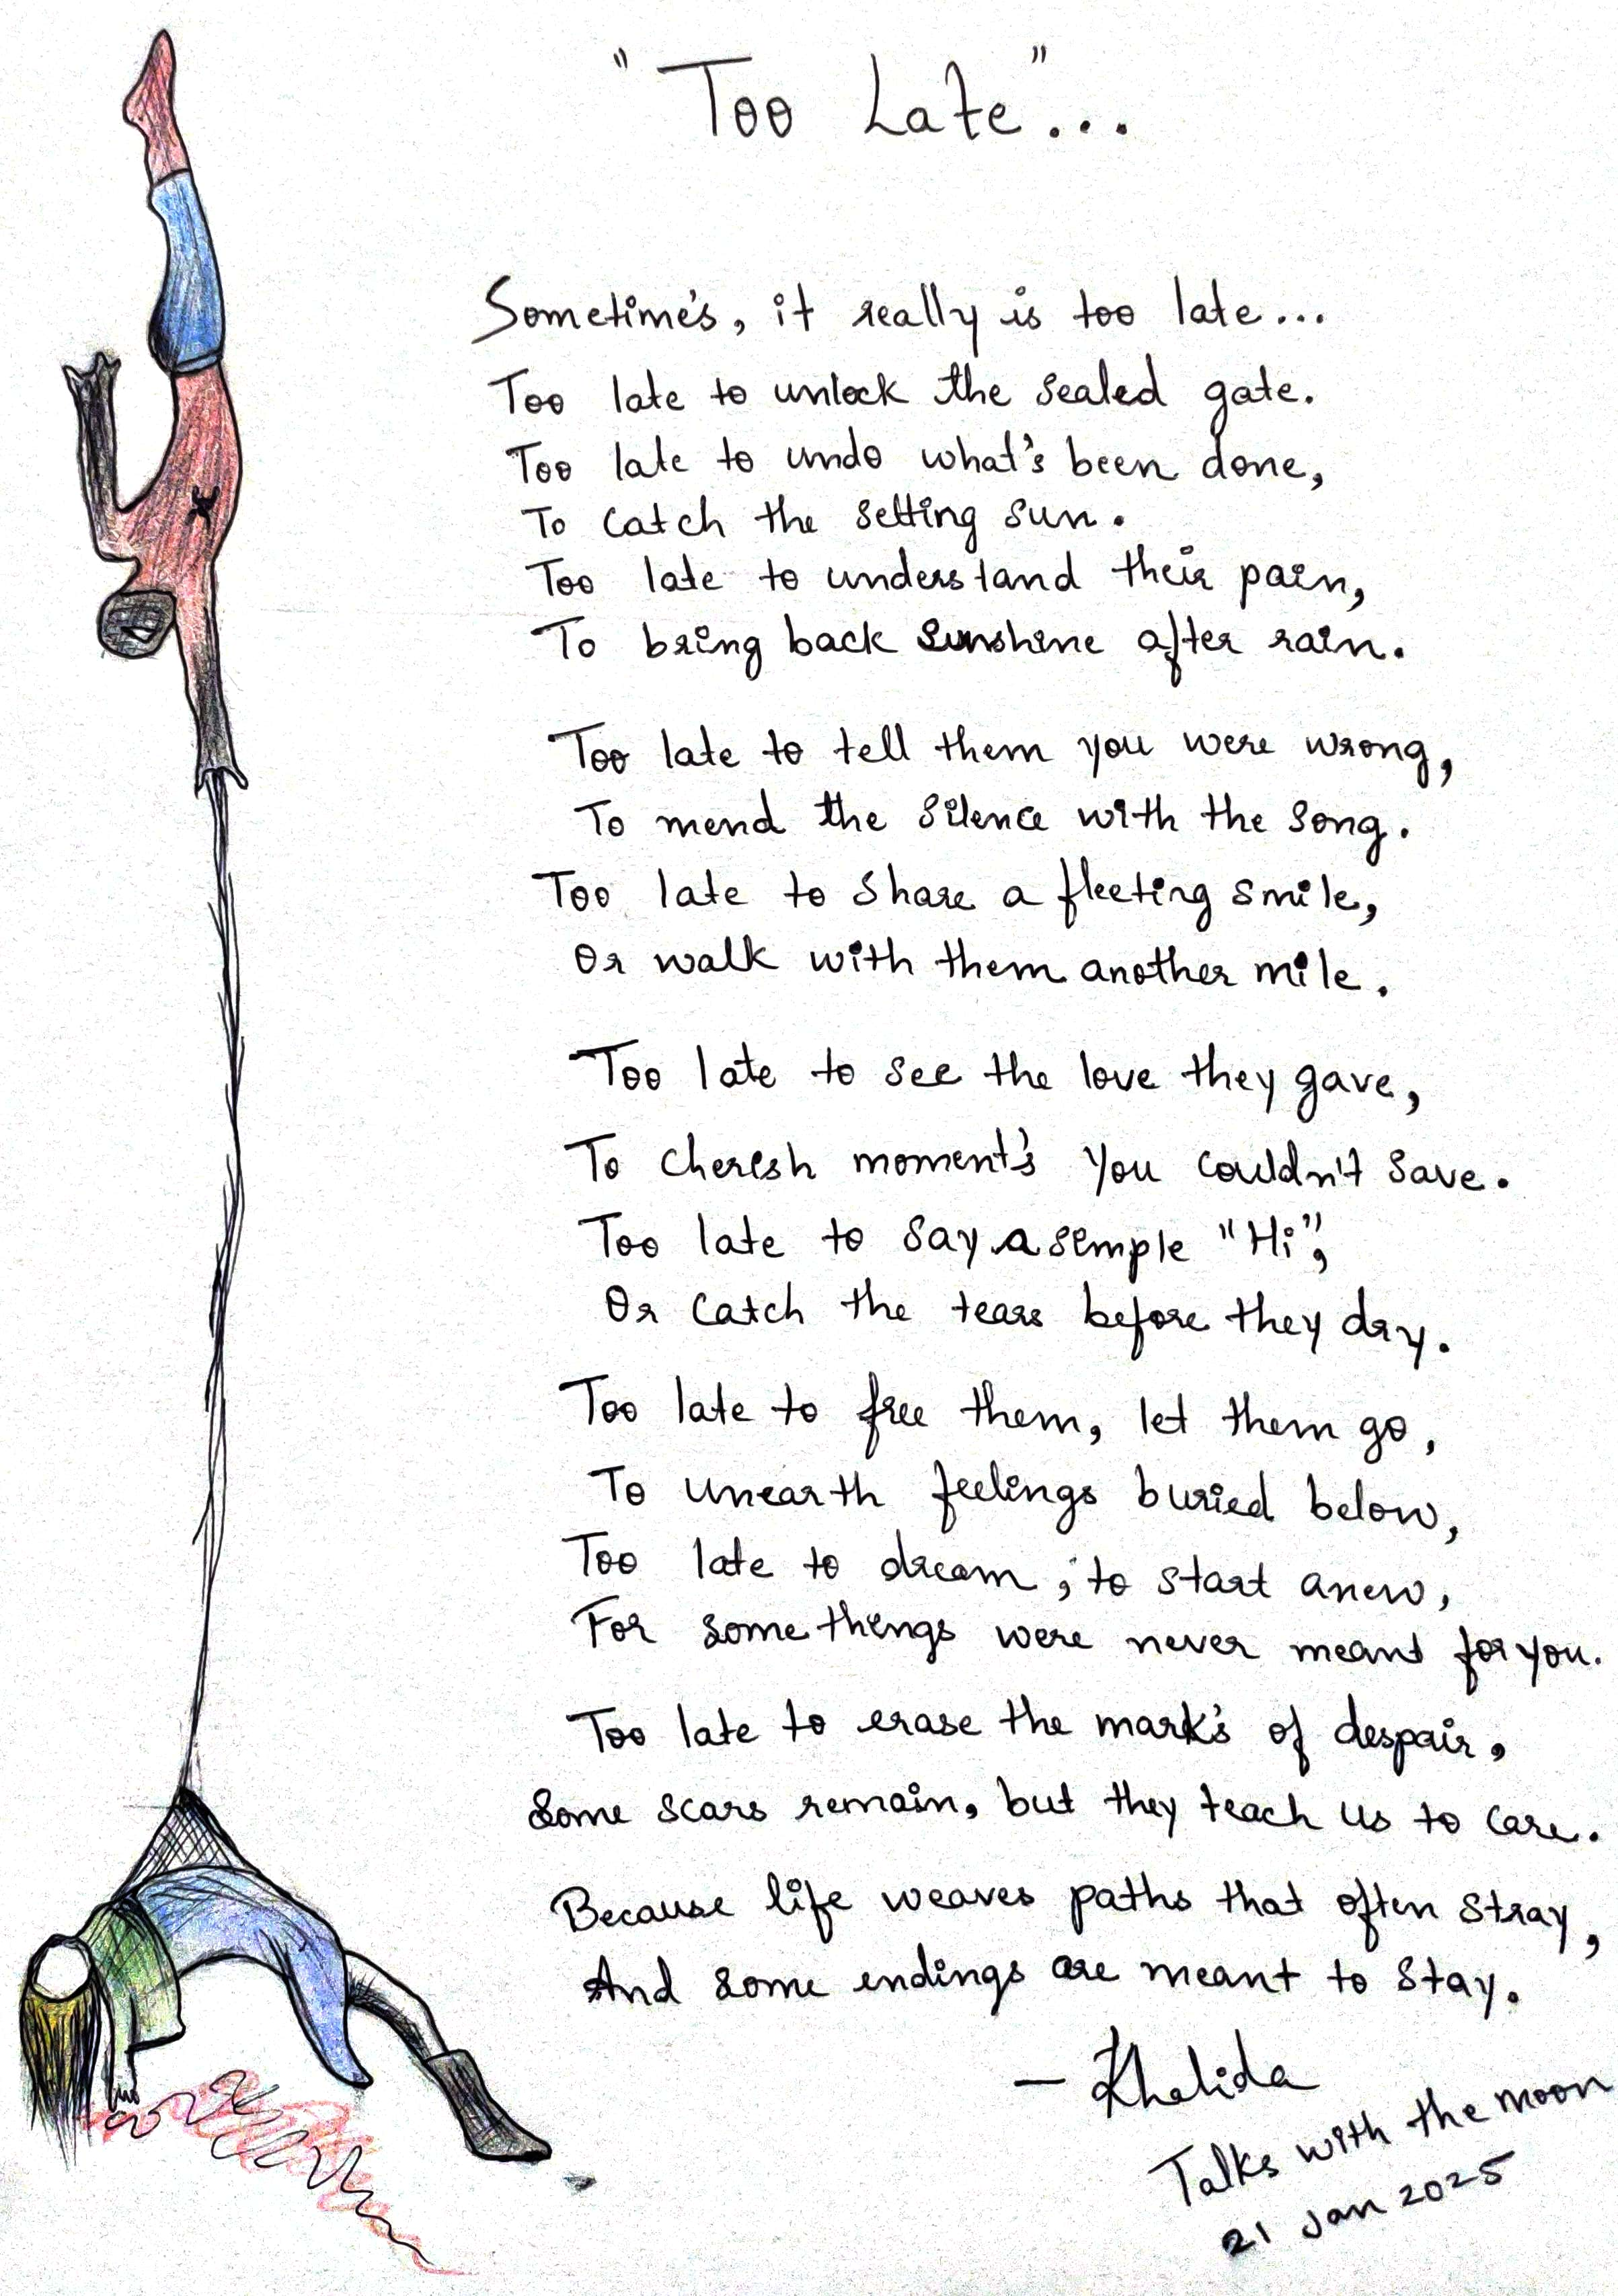 "Too Late"...
Sometime's, it really is too late...
Too late to unlock the sealed gate.
Too late to undo what's been done,
To catch the setting sun.
Too late to understand their pain,
To bring back sunshine after rain.
Too late to tell them you were wrong,
To mend the silence with the song.
Too late to share a fleeting smile,
Or walk with them another mile.
Too late to see the love they gave,
To cherish moment's you couldn't save.
Too late to say a simple "Hi",
Or catch the tears before they dry.
Too late to free them, let them go,
To unearth feelings buried below,
Too late to dream, to start anew,
For some things were never meant for you.
Too late to erase the mark's of despair,
Some scars remain, but they teach us to care.
Because life weaves paths that often stray,
And some endings are meant to stay.
- Khalida
Talks with the moon
21 Jan 2025